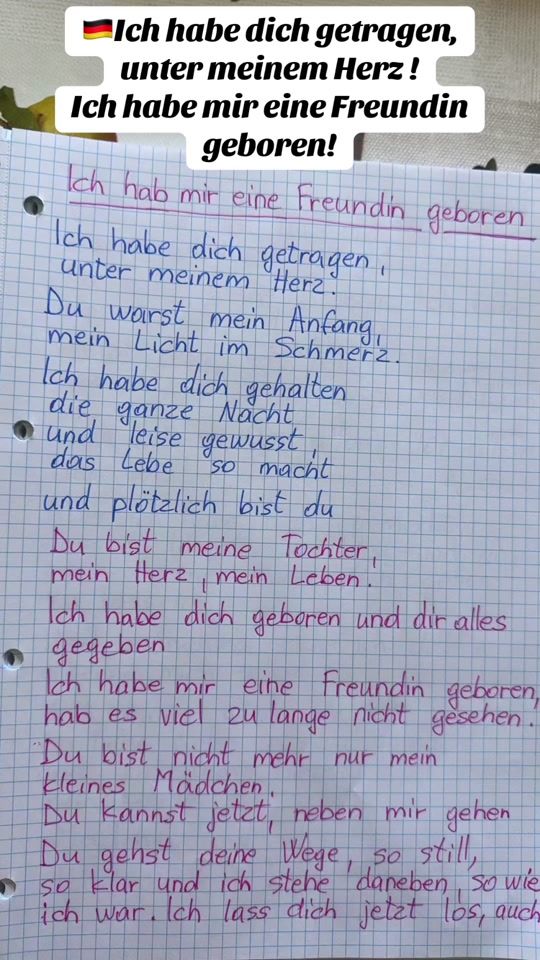 🇩🇪Ich habe dich getragen,
unter meinem Herz !
Ich habe mir eine Freundin
geboren!
Ich hab mir eine Freundin geboren
Ich habe dich getragen,
unter meinem Herz.
Du warst mein Anfang,
mein Licht im Schmerz.
Ich habe dich gehalten
die ganze Nacht
und leise gewusst,
das Lebe so macht
und plötzlich bist du
Du bist meine Tochter,
mein Herz, mein Leben.
Ich habe dich geboren und dir alles
gegeben
Ich habe mir eine Freundin geboren,
hab es viel zu lange nicht gesehen.
Du bist nicht mehr nur mein
kleines Mädchen.
Du kannst jetzt, neben mir gehen
Du gehst deine Wege, so still,
so klar und ich stehe daneben, so wie
ich war. Ich lass dich jetzt los, auch